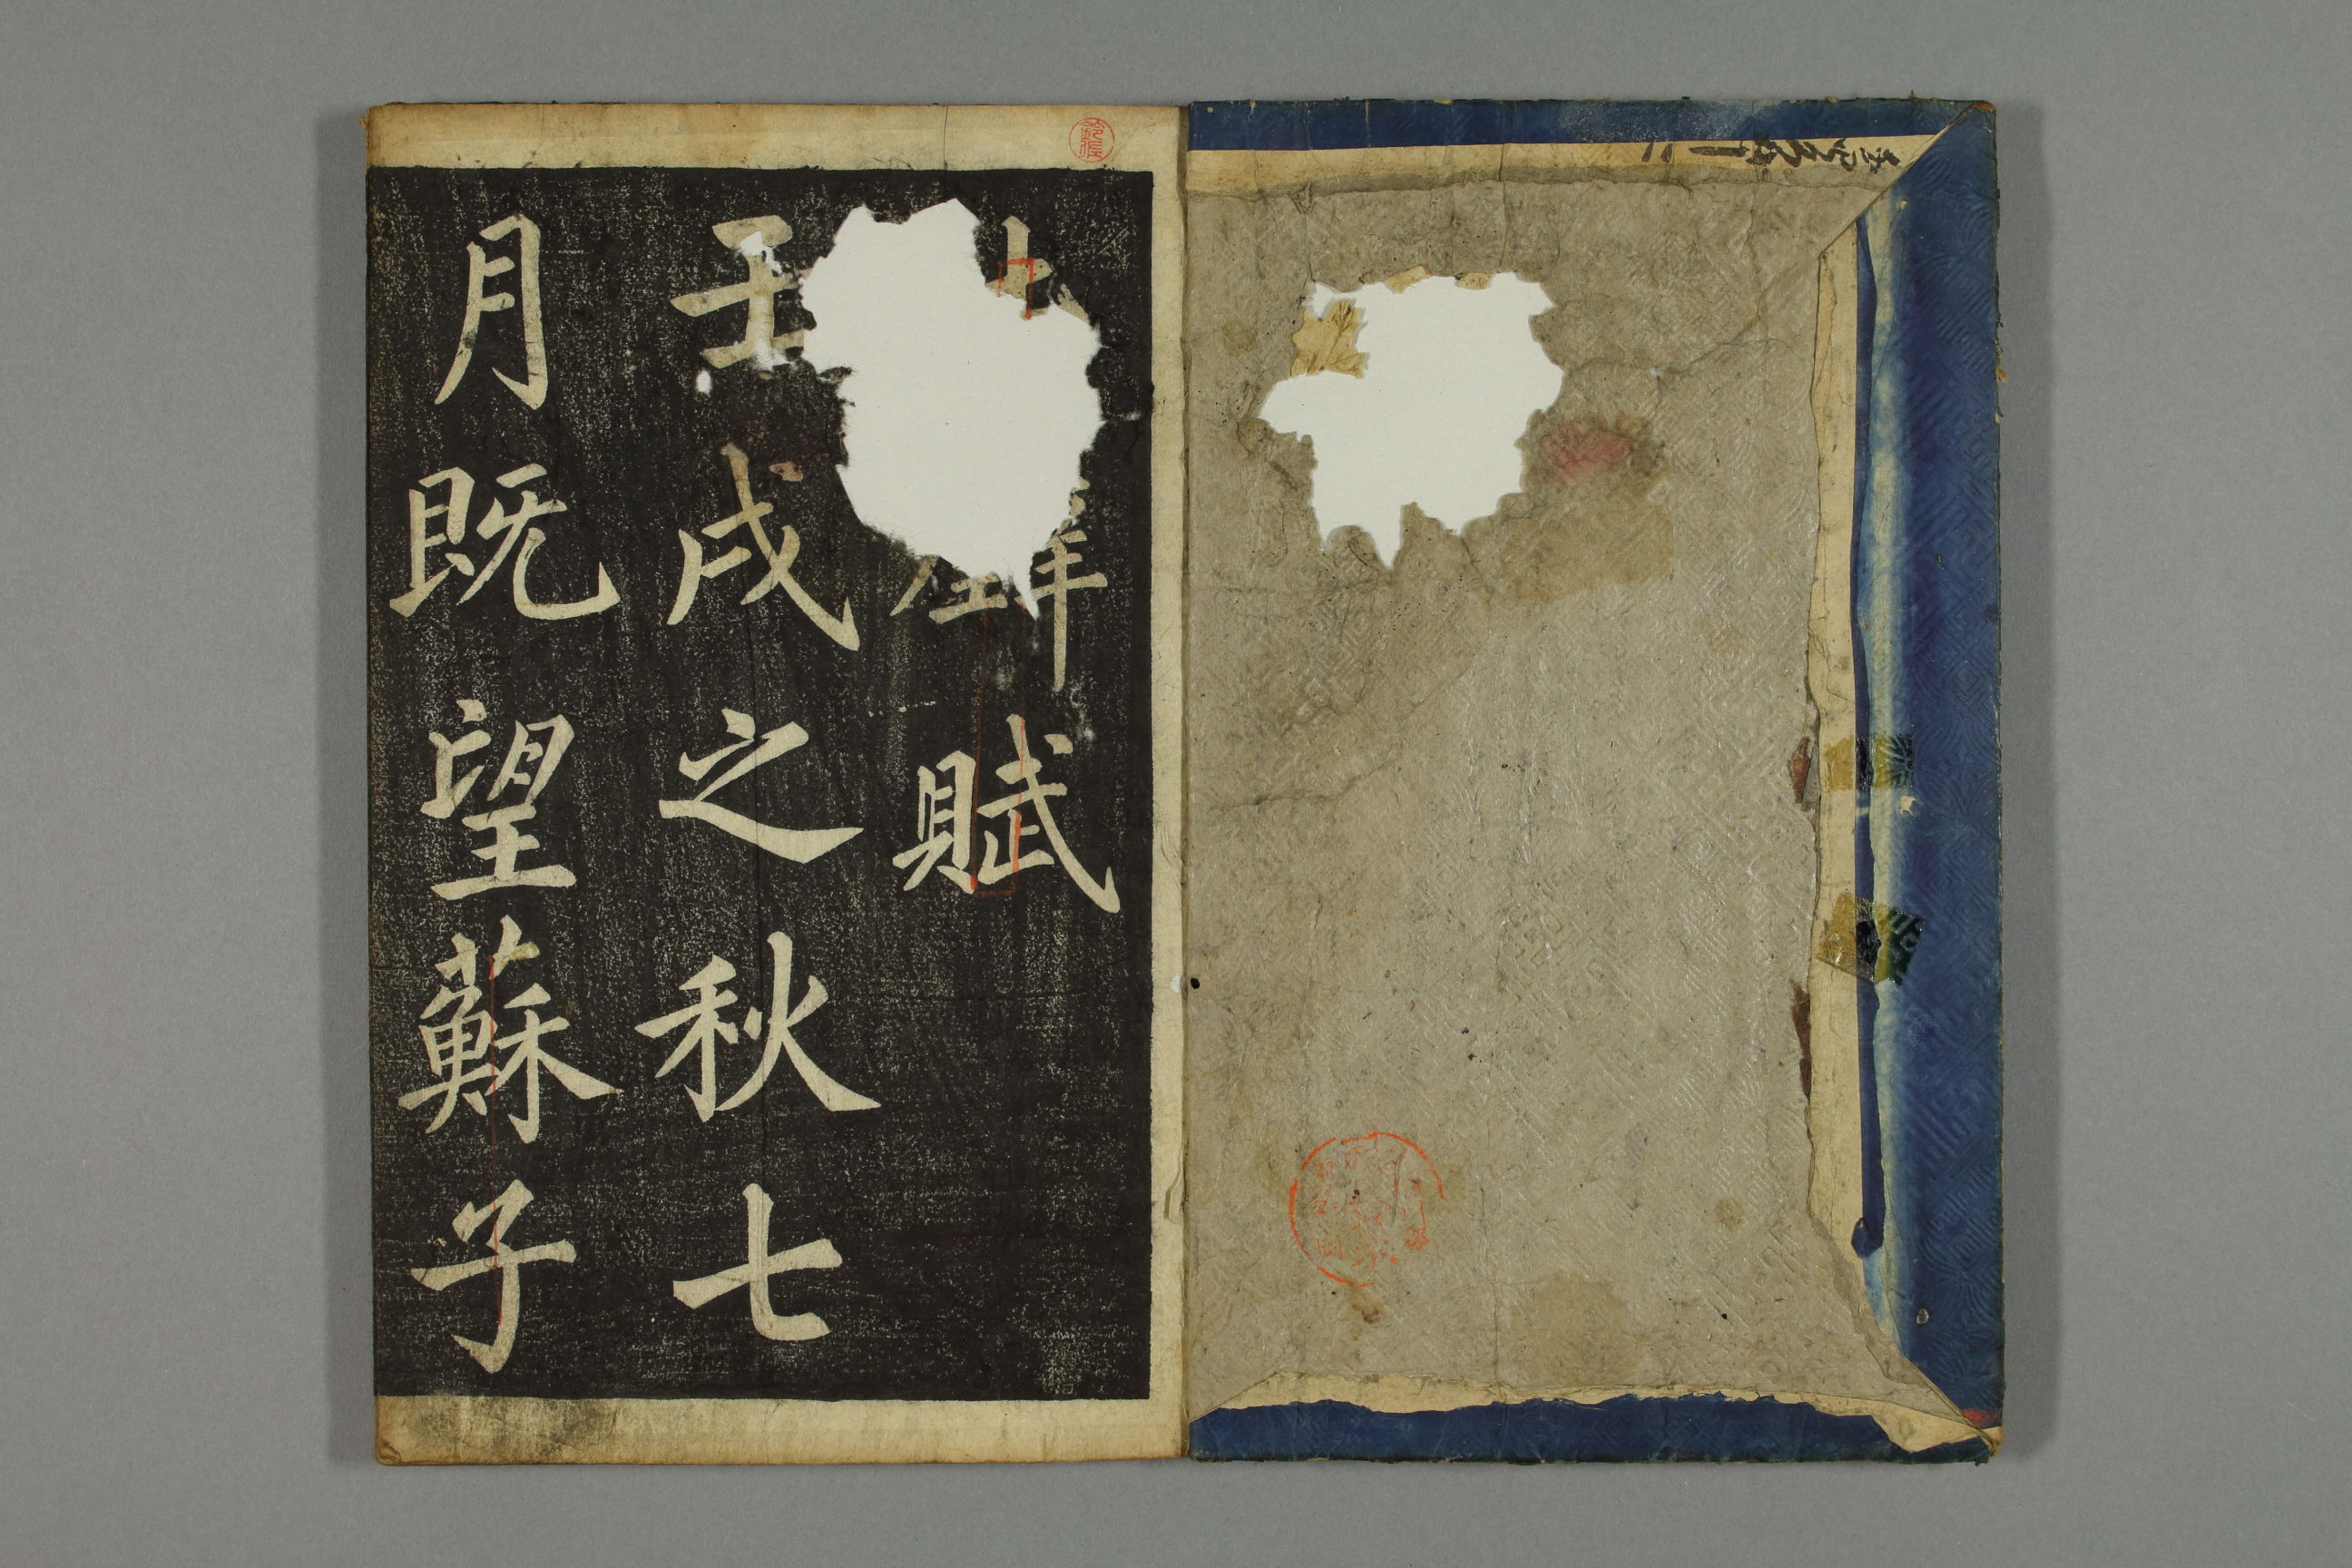 壁賦
壬戌之秋七
月既望蘇子